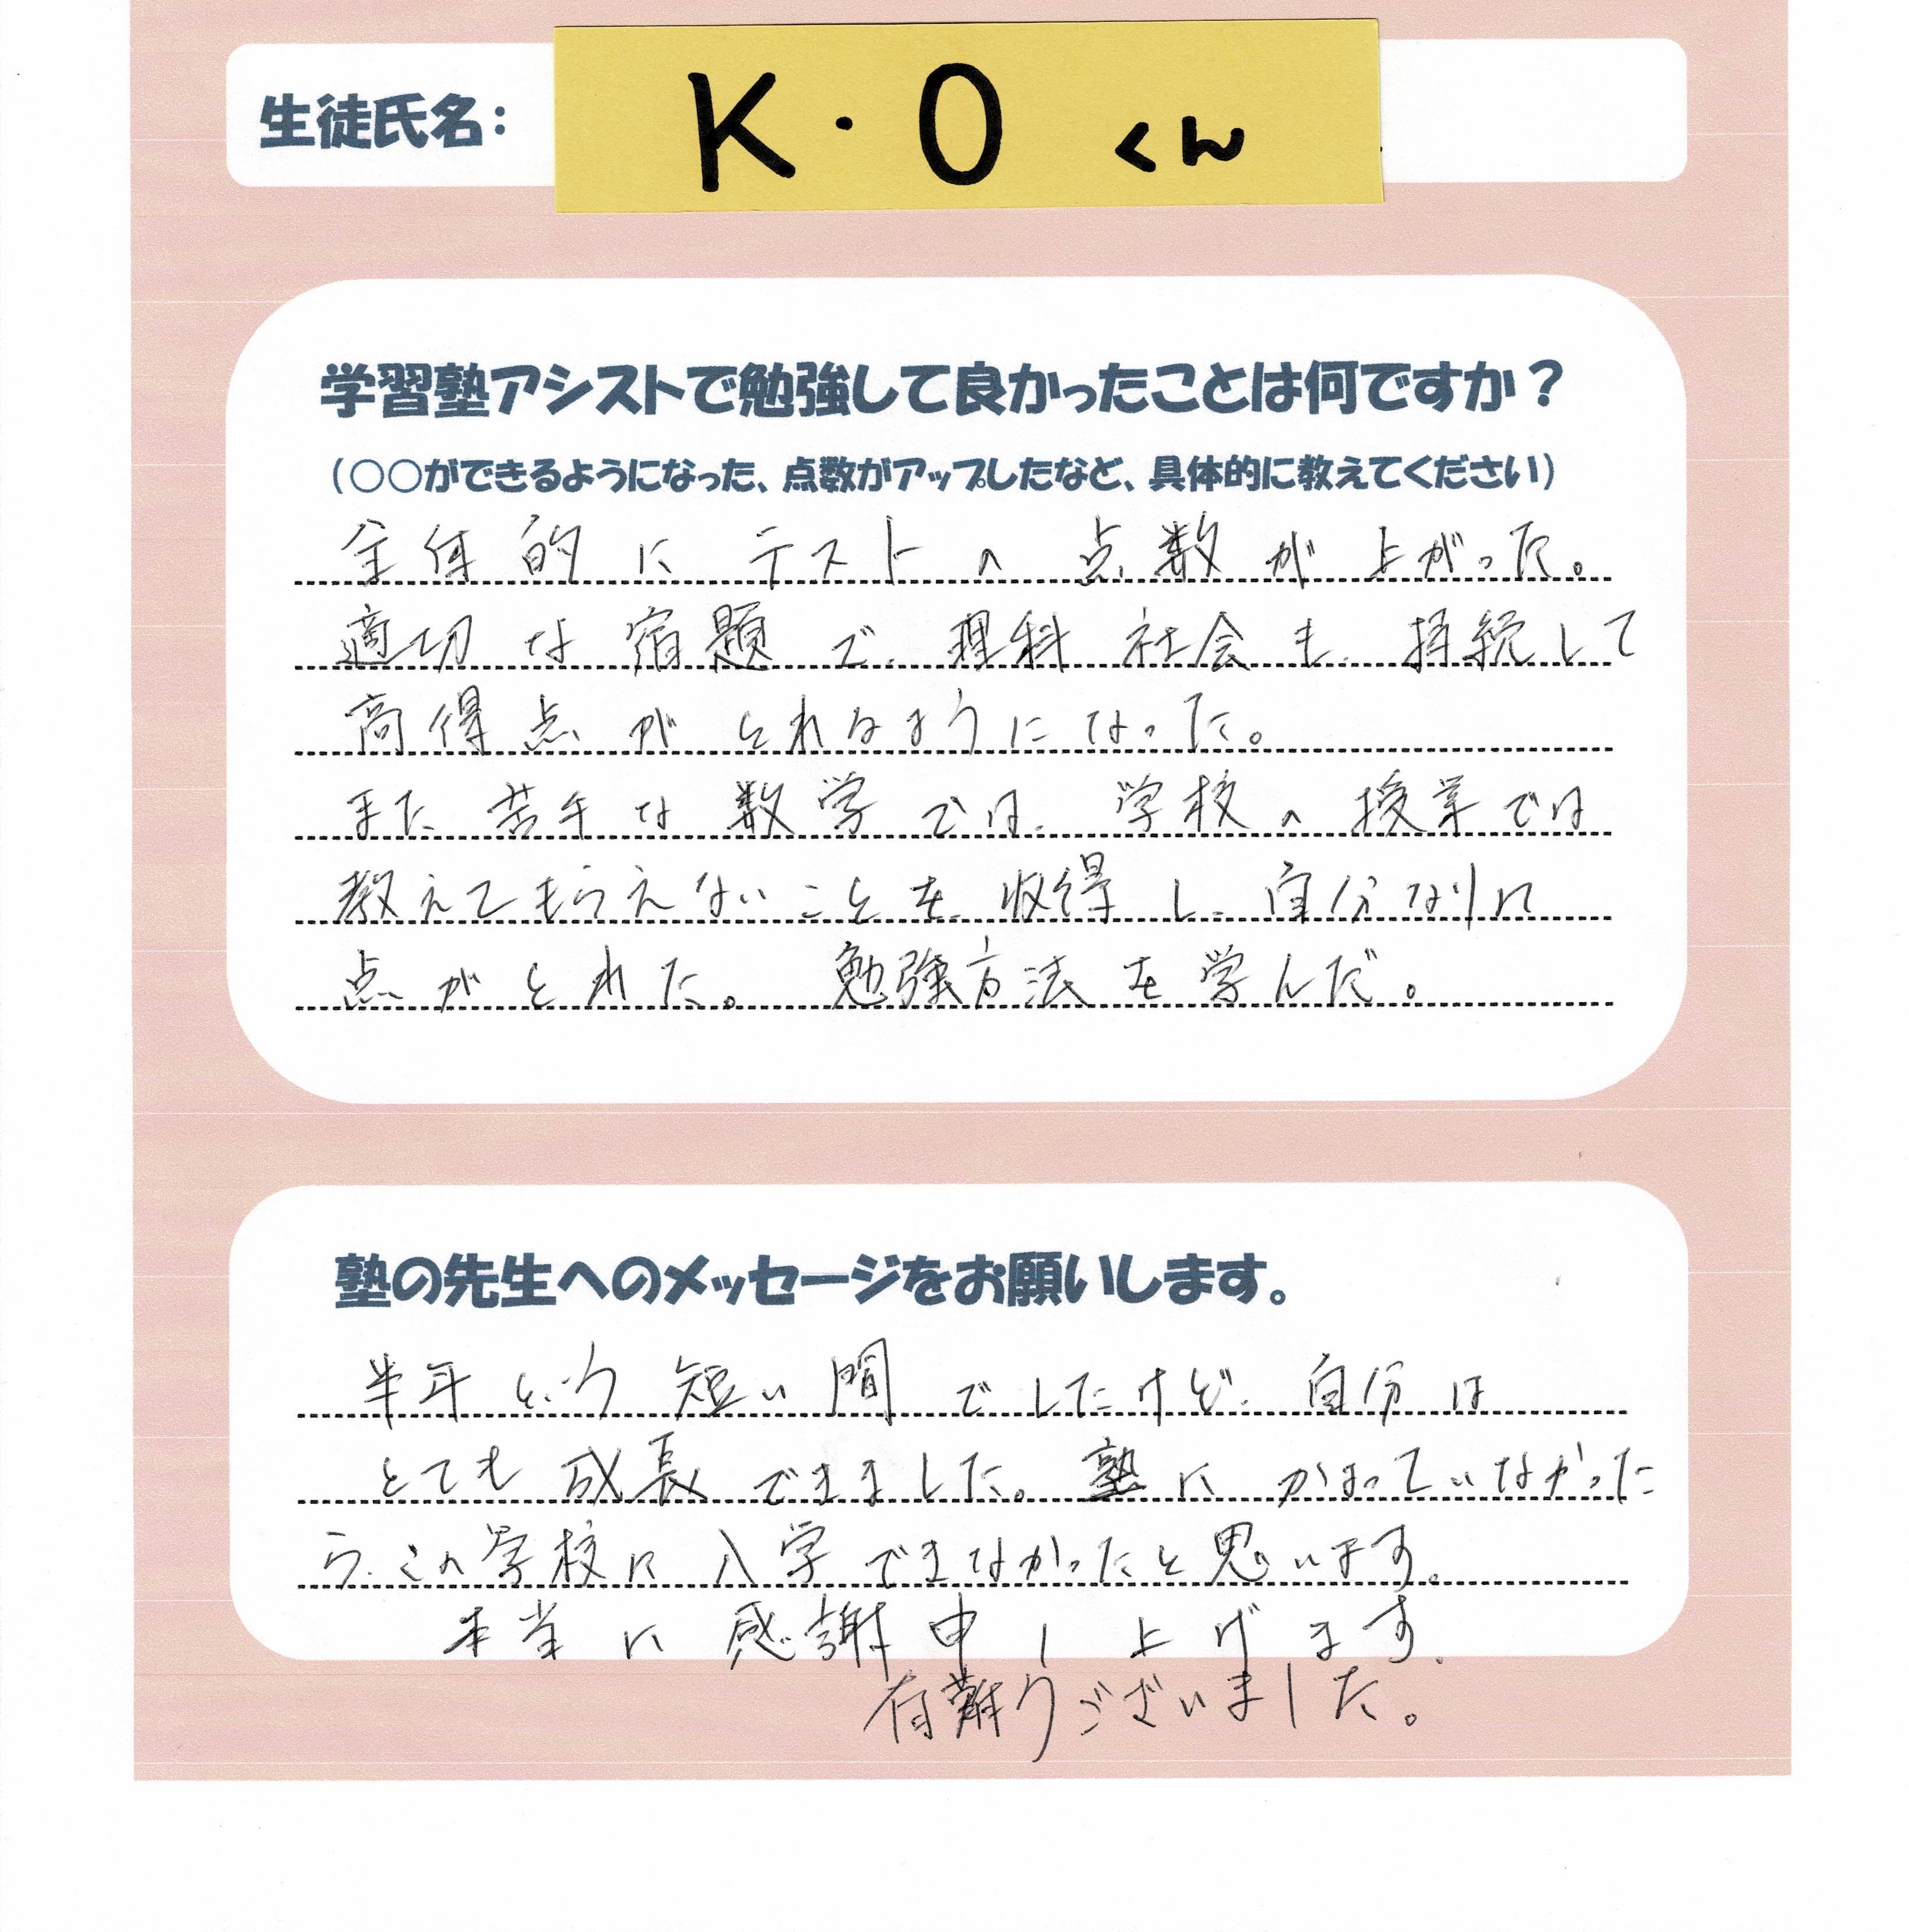 生徒氏名：
K・O くん
学習塾アシストで勉強して良かったことは何ですか？
（○○ができるようになった、点数がアップしたなど、具体的に教えてください）
全体的にテストの点数が上がった。
適切な宿題で、理科社会も、持続して
高得点がとれるようになった。
また苦手な数学では、学校の授業では
教えてもらえないことを収得し、自分なりに
点がとれた。勉強方法を学んだ。
塾の先生へのメッセージをお願いします。
半年という短い間でしたけど、自分は
とても成長できました。塾にかよっていなかった
ら、この学校に入学できなかったと思います。
本当に感謝申し上げます。
有難うございました。